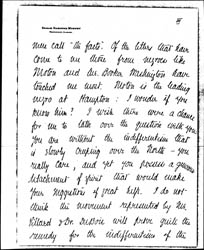 III
men call "the facts". Of the letters that have
come to me those from negroes like
Moton and Mr. Booker Washington have
touched me most. Moton is the leading
negro at Hampton: I wonder if you
know him? I wish there were a chance
for me to talk over the question with you.
you are without the indifferentism that
is slowly creeping over the North - you
really care; and yet you possess a
detachment of spirit that would make
your suggestions of great help. I do not
think the movement represented by Mr
Villard & Dr. DuBois will prove quite the
remedy for the indifferentism of the